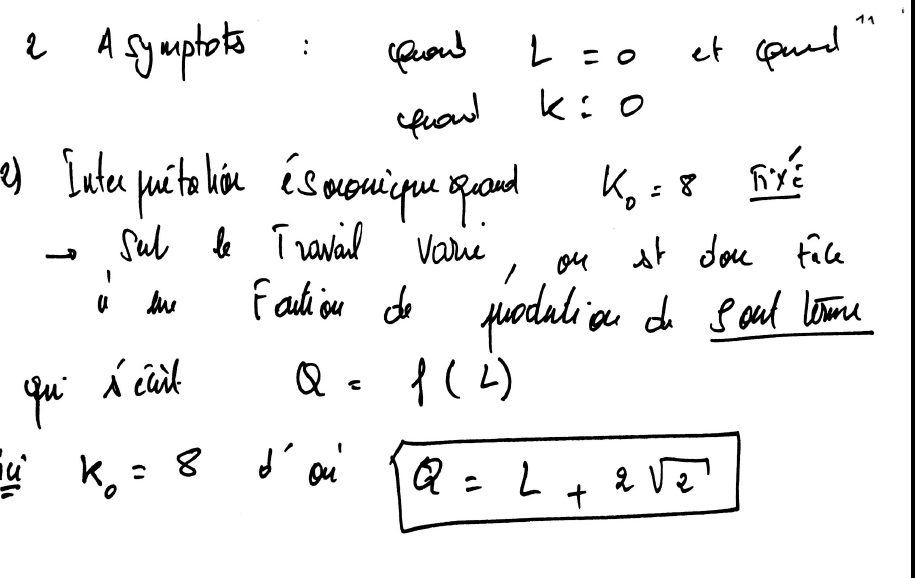 11
2 Asymptots : quand L = 0 et quand
quand K = 0
2) Interprétation économique quand K₀ = 8 Fixé
→ Seul le Travail varie, on est donc face
à une Fonction de production de Court terme
qui s'écrit Q = f(L)
ici K₀ = 8 d'où Q = L + 2√2